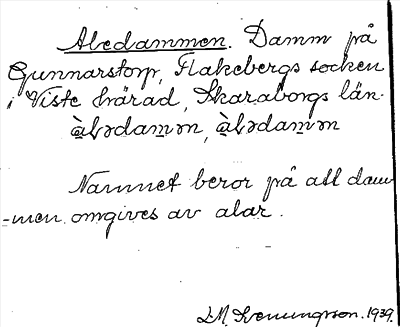 Abedammen. Damm på
Gunnarstorp, Flakebergs socken
i Viste härad, Skaraborgs län.
àbədamən, àbədamən
Namnet beror på att dam-
-men omgives av alar.
1939.